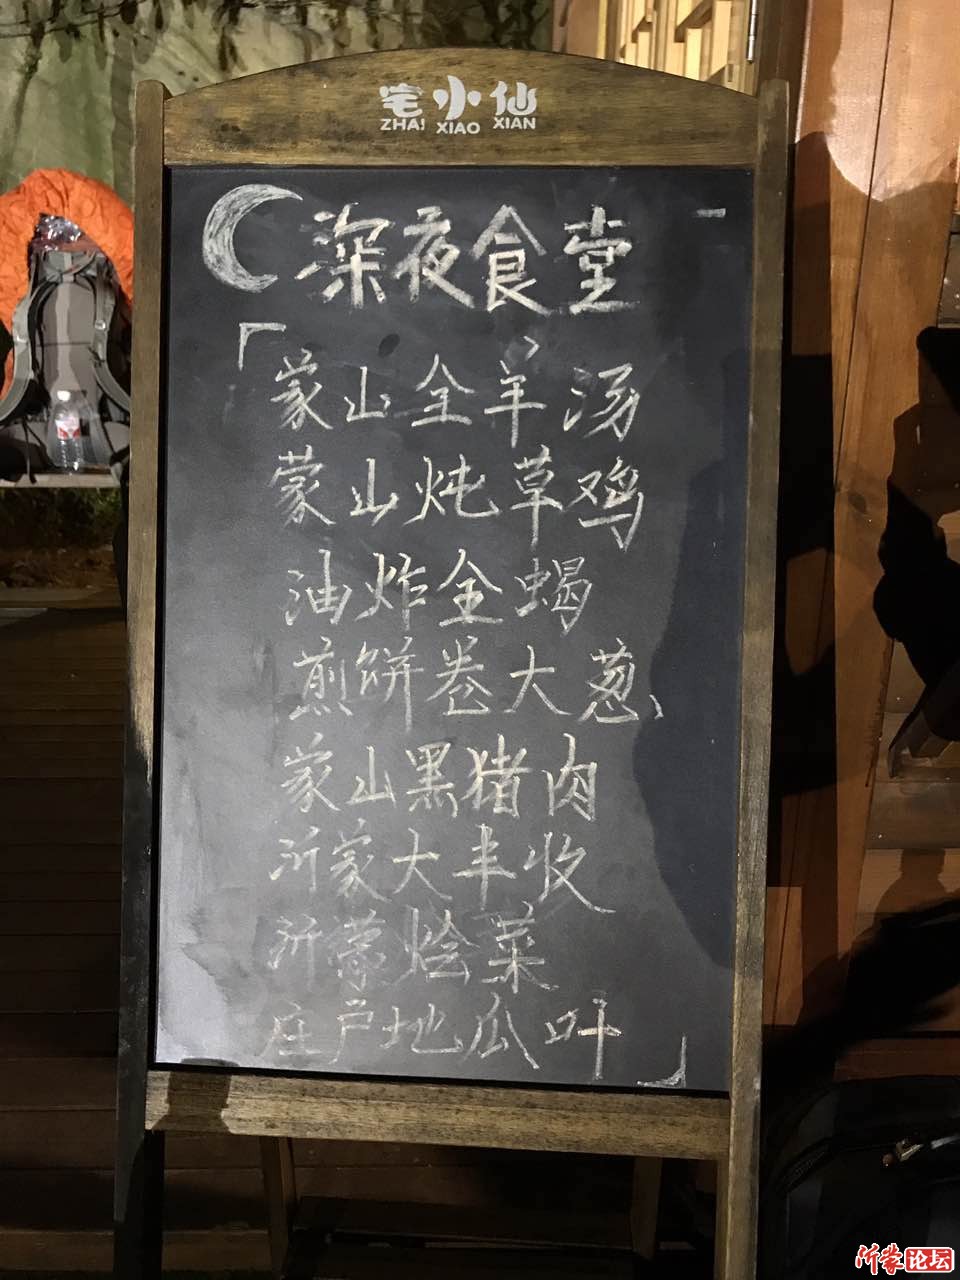 宅小仙
ZHAI XIAO XIAN
深夜食堂
「蒙山全羊汤
蒙山炖草鸡
油炸全蝎
煎饼卷大葱
蒙山黑猪肉
沂蒙大丰收
沂蒙烩菜
庄户地瓜叶」
沂蒙论坛